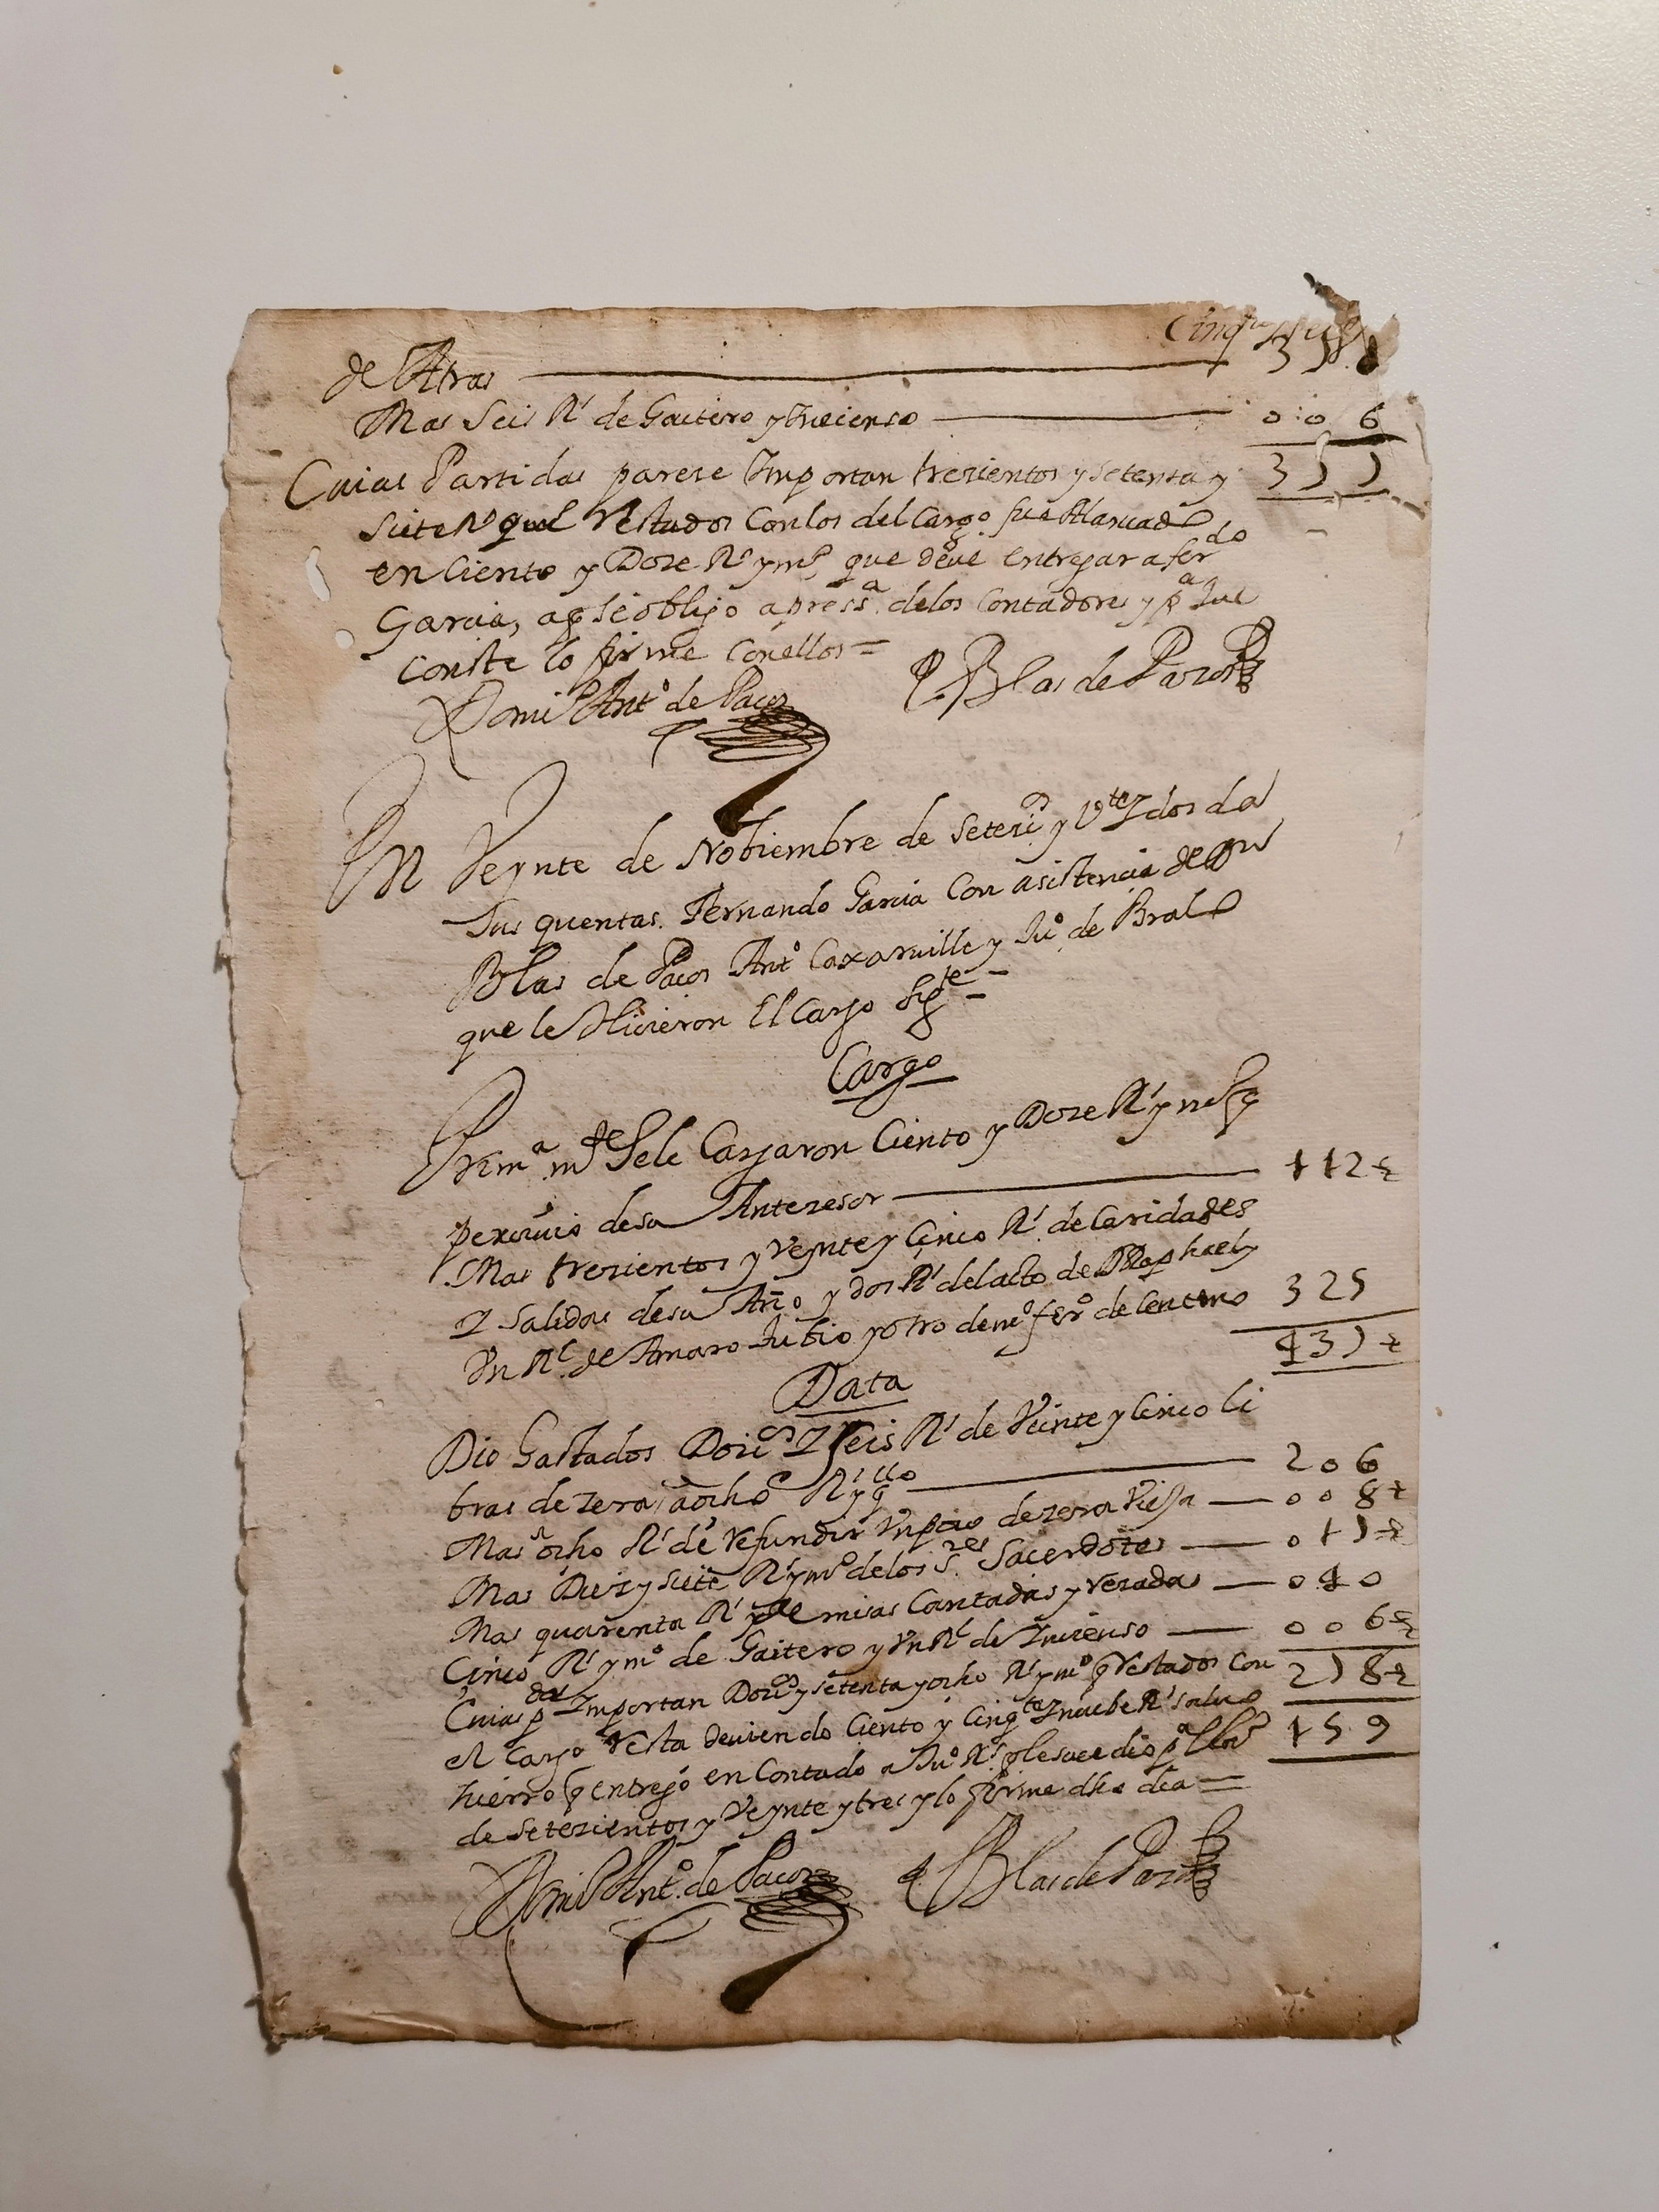 de Atras
Mas Seis Rˢ de Gaitero y Yncienso 0:0 6
Cuias Partidas parece Importan trezientos y setenta y 377
siete Rˢ que Restados Con los del Cargo fue Alcanzado
en Ciento y Doze Rˢ y mº que deve entregar a ferdo
Garcia, a q se obligo a press.ª de los Contadores y pª que
conste lo firme con ellos =
Domº Antº de Pacos Blas de Pazos
En Veynte de Nobiembre de Setezos y Vte Z dos da
sus quentas. Fernando Garcia Con asistencia de
Blas de Pacos Antº Caxaraville y Juº de Bral
que le Hicieron El Cargo sigte =
Cargo
Primª mte Se le Cargaron Ciento y Doze Rˢ y mº q
percivio de su Antezesor 112½
Mas trezientos y Veynte y Cinco Rˢ de Caridades
Z Salidas de su Año y dos Rˢ del acto de Raphael y
Un Rl de Amaro Rubio y otro de mº ferº de Centeno 325
437½
Data
Dio Gastados Dozos Z seis Rˢ de Veinte y Cinco li
bras de zera a ocho Rˢ y qllo 206
Mas ocho Rˢ de Refundir Un pco de zera Vieja 008½
Mas Diez y siete Rˢ y mº de los S.res Sacerdotes 017½
Mas quarenta Rˢ de misas Cantadas y Rezadas 040
Cinco Rˢ y mº de Gaitero y Un Rl de Yncienso 006½
Cuias pdas Importan Dozos y setenta y ocho Rˢ y mº q Restados Con 278½
el Cargo Resta deviendo Ciento y Cinqta Z nuebe Rˢ salvo 159
hierro q entregó en Contado a Juº Rˢ q le sucedio pª
de setezientos y Veynte y tres y lo firme dho dia =
Domº Antº de Pacos Blas de Pazos